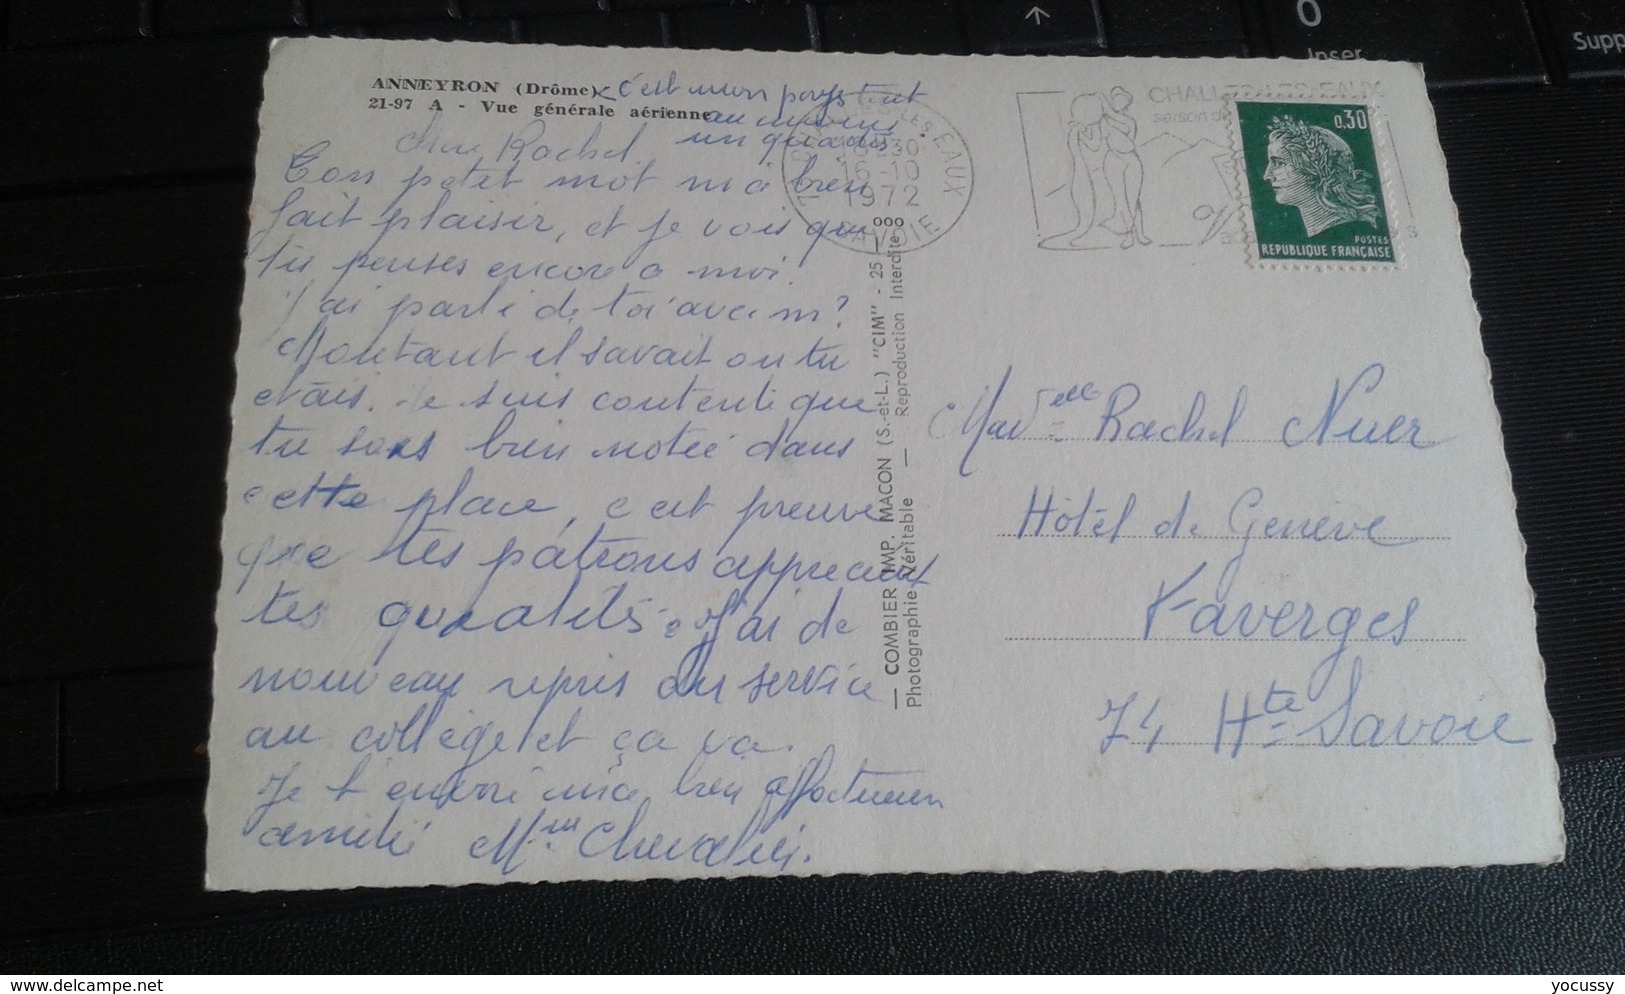 ANNEYRON (Drôme) c'est mon pays tout
21-97 A - Vue générale aérienne au moins
un quasi
chère Rachel
Ton petit mot m'a bien
fait plaisir, et je vois que
tu penses encore a moi.
J'ai parlé de toi avec m?
Montant il savait ou tu
etais. Je suis contente que
tu sois bien notée dans
cette place, c'est preuve
que tes patrons apprecient
tes qualités. J'ai de
nouveau repris du service
au collège et ça va.
Je t'envoi une bien affectueuse
amitié Mme Chevalier.
— COMBIER IMP. MACON (S.-et-L.) "CIM" - 25
Photographie Véritable — Reproduction Interdite
LES EAUX
1972
SAVOIE
CHALLES-LES-EAUX
saison
0,30
POSTES
REPUBLIQUE FRANÇAISE
Mad elle Rachel Nuer
Hôtel de Genève
Faverges
74 Hte Savoie
0
Inser
Supp
delcampe.net
yocussy